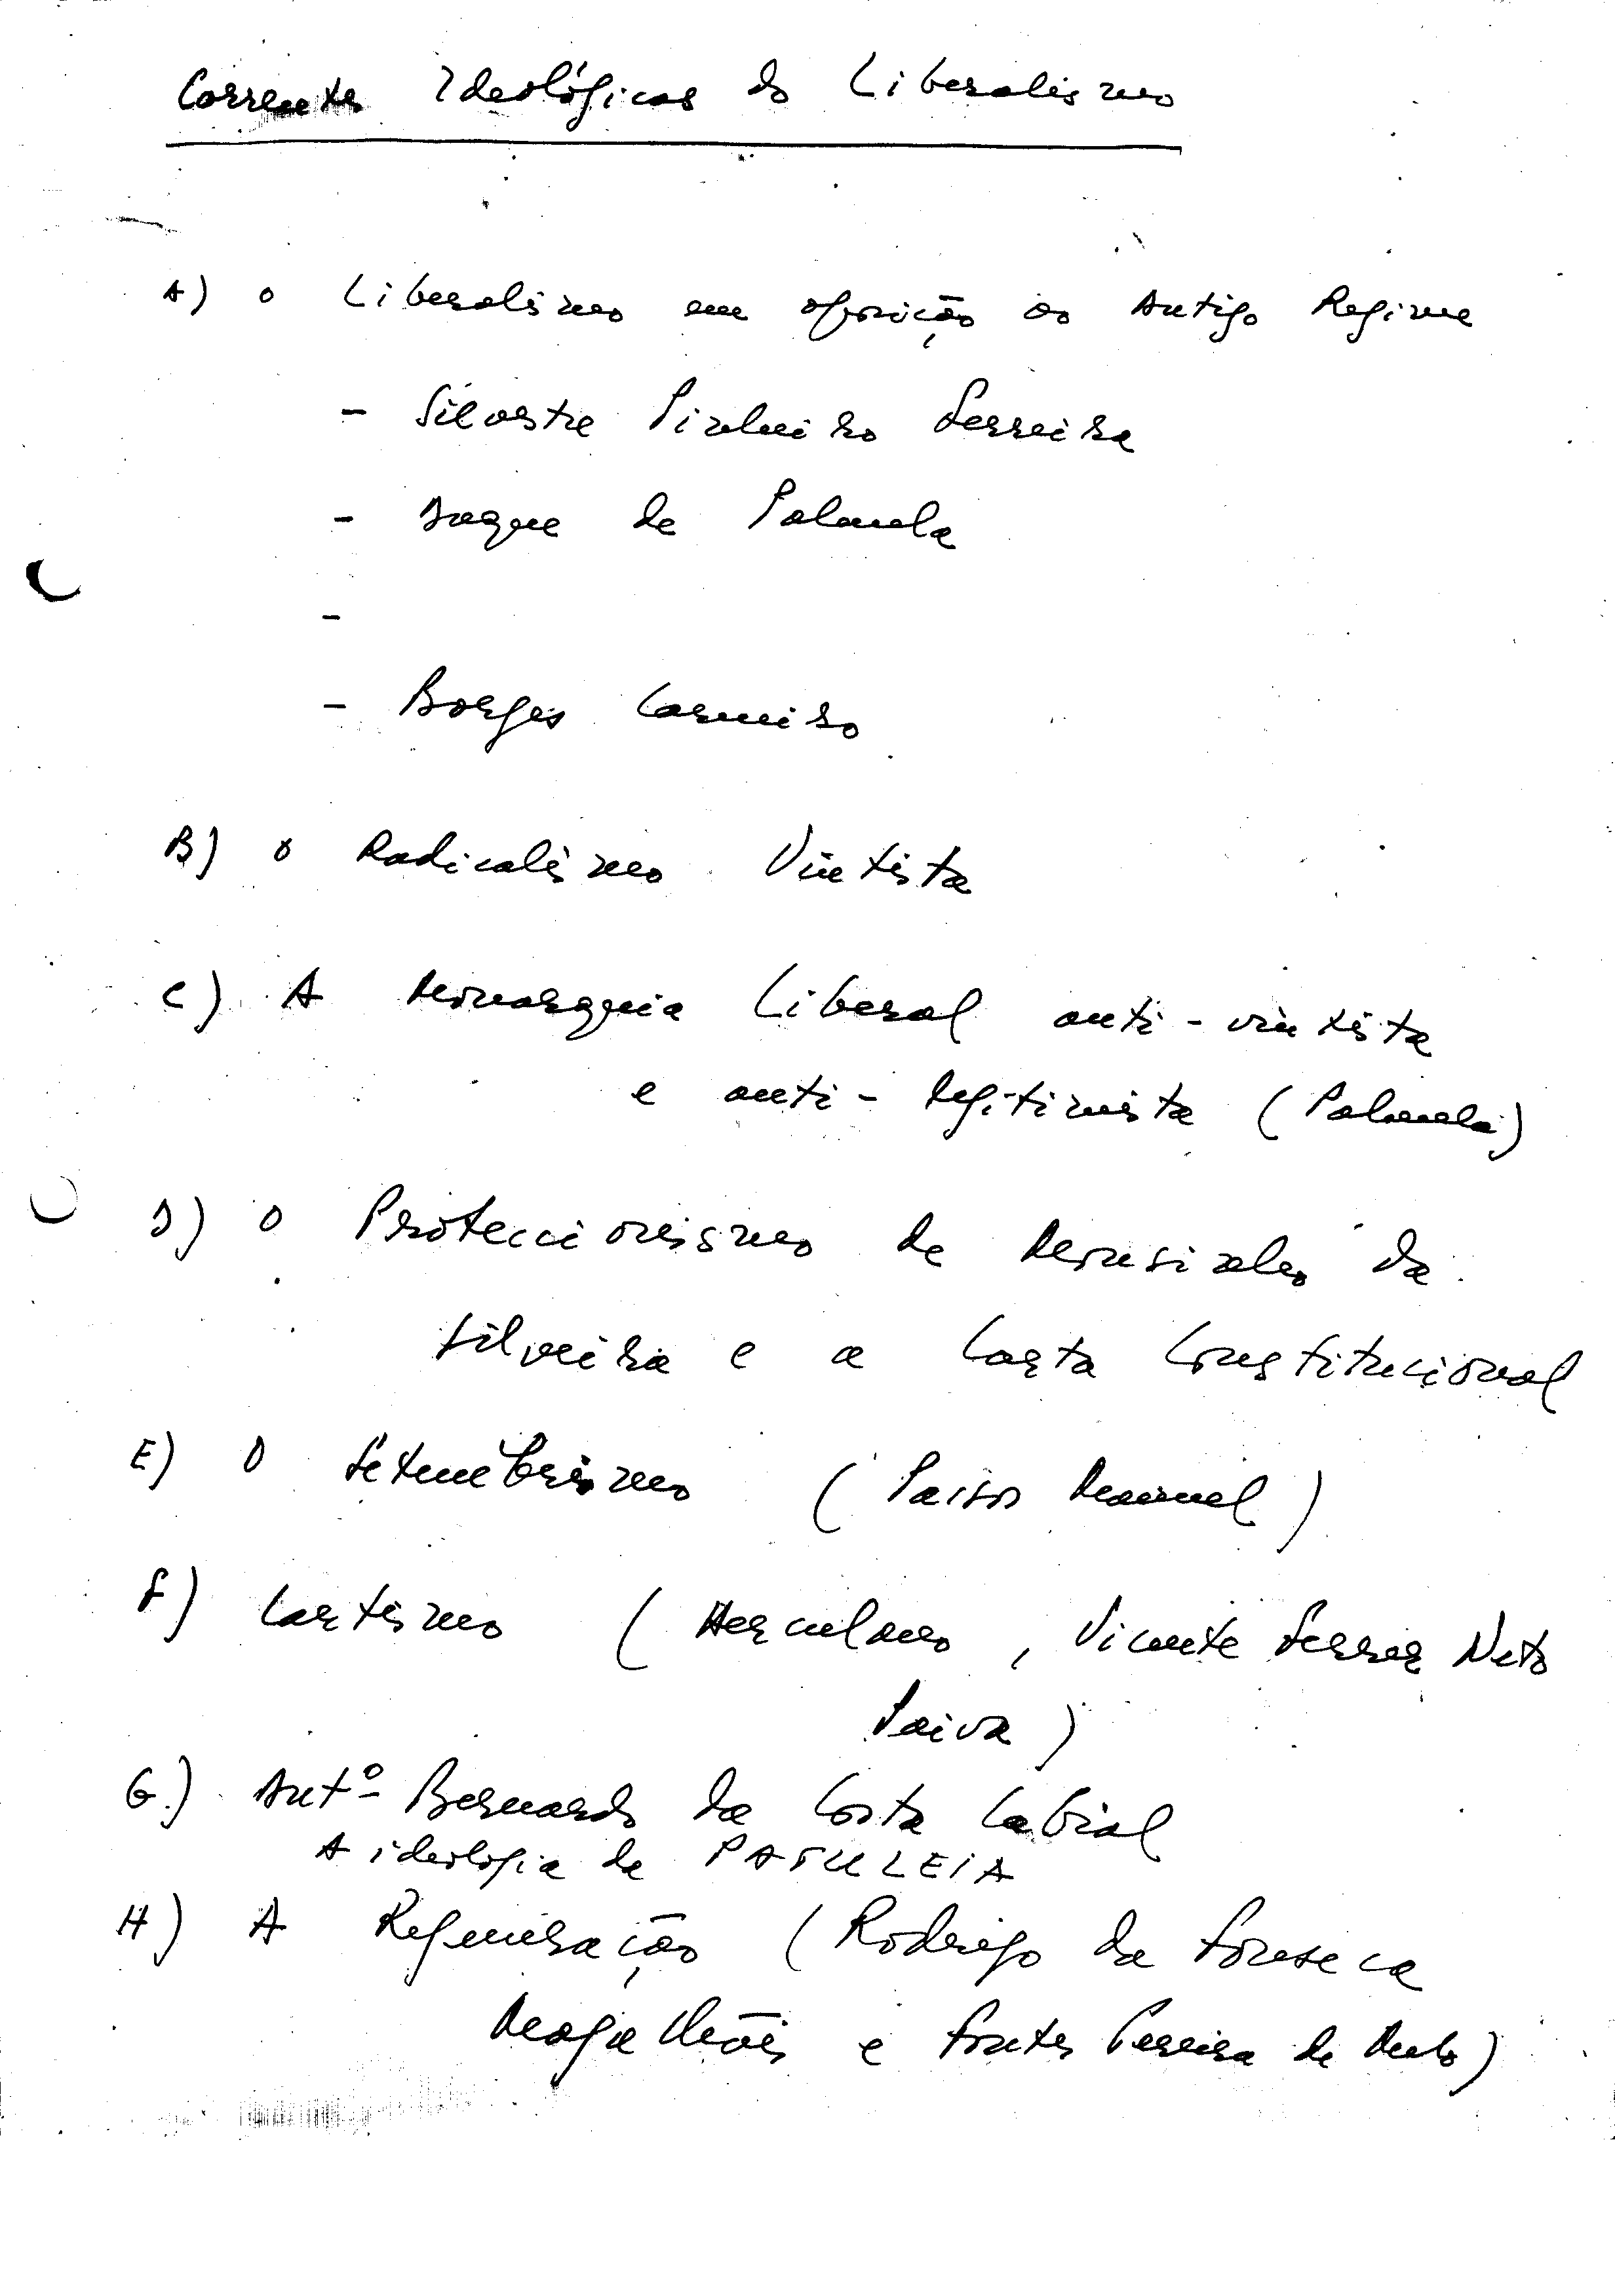 Correntes Ideológicas do Liberalismo
A) O Liberalismo em oposição ao Antigo Regime
- Silvestre Pinheiro Ferreira
- Duque de Palmela
-
- Borges Carneiro
B) O Radicalismo Vintista
C) A Monarquia Liberal anti-vintista
e anti-legitimista (Palmela)
D) O Proteccionismo de Mousinho da
Silveira e a Carta Constitucional
E) O Setembrismo (Passos Manuel)
F) Cartismo (Herculano, Vicente Ferrer Neto
Paiva)
G) Antº Bernardo da Costa Cabral
A ideologia da PATULEIA
H) A Regeneração (Rodrigo da Fonseca
Magalhães e Fontes Pereira de Melo)